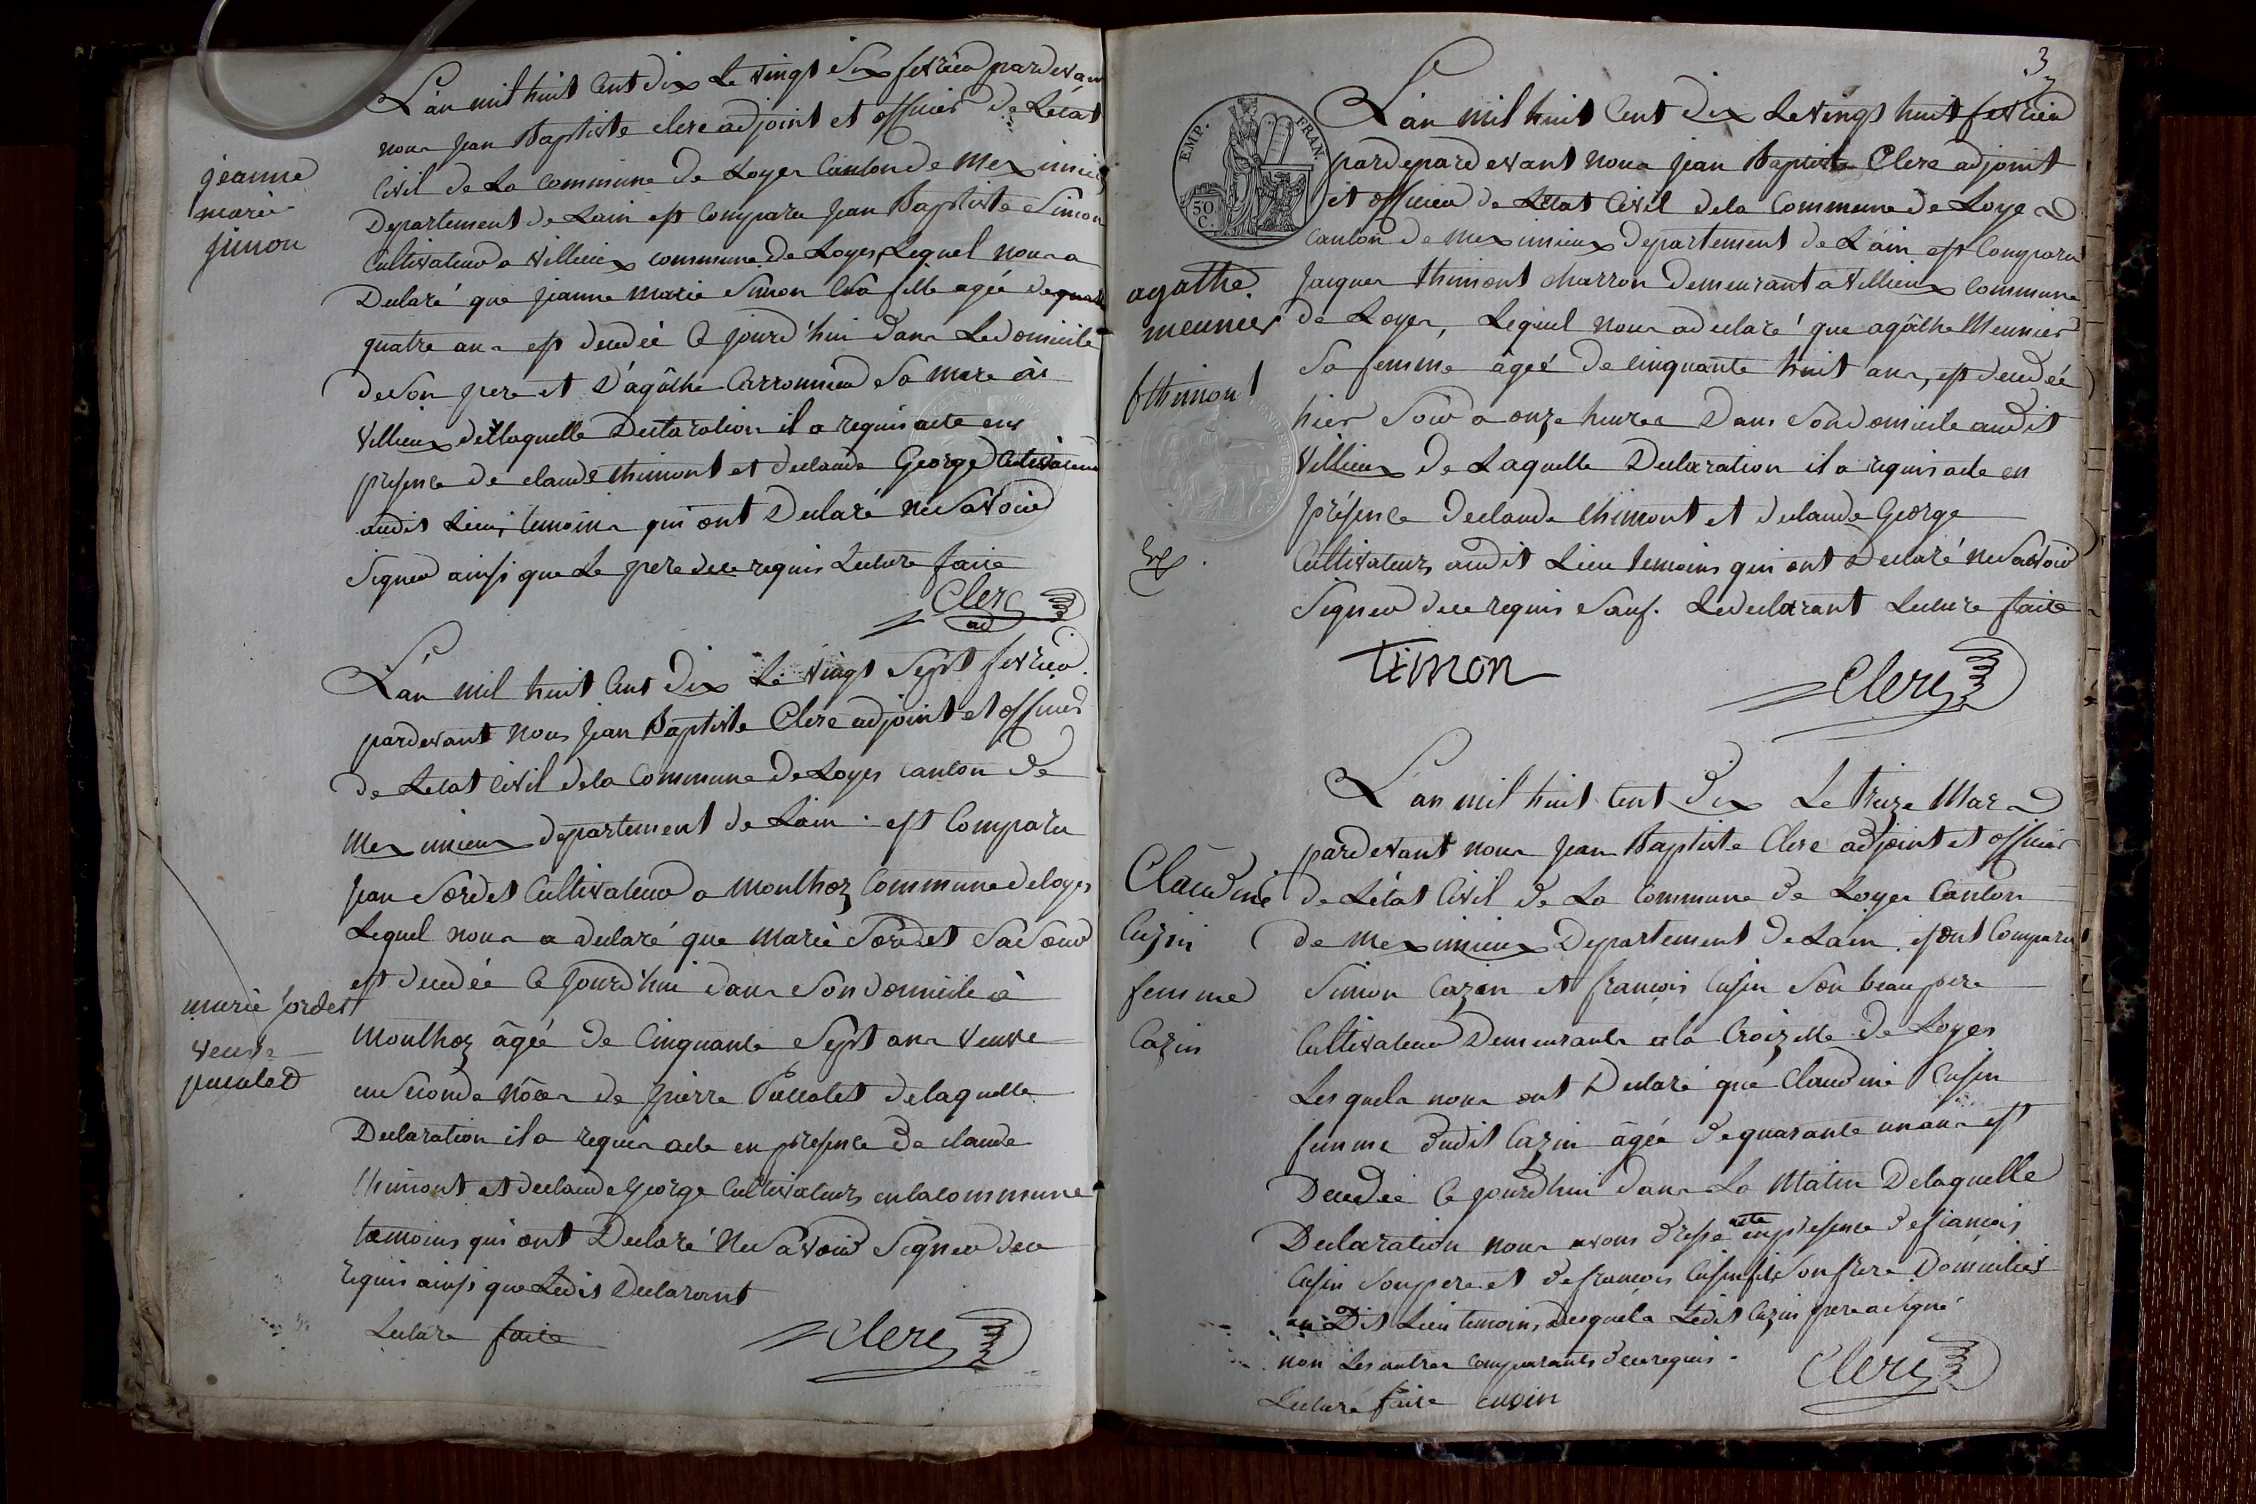 L'an mil huit Cent dix Le vingt six fevrier pardevant
nous jean Baptiste clerc adjoint et officier de Létat
Civil de La commune de Loyes Canton de Meximieux
Departement de Lain est Comparu jean Baptiste Simon
Cultivateur a Villieux commune de Loyes, Lequel nous a
Declaré que jeanne marie Simon Sa fille agée de
quatre ans est decedée Ce jourd'hui dans Le domicile
de Son pere et D'agâthe Carronnier Sa mere ai
Villieux de Laquelle Declaration il a requis acte en
presence de claude thimont et de claude George Cultivateurs
audit Lieu, temoins qui ont Declaré ne Savoir
Signer ainsi que Le pere de ce requis Lecture faite
Clerc
ad
jeanne
marie
simon
L'an mil huit Cent Dix Le vingt Sept fevrier
pardevant nous jean Baptiste Clerc adjoint et officier
de Letat Civil dela Commune de Loyes canton de
Meximieux departement de Lain est Comparu
jean Sordet Cultivateur a Monthoz Commune de loyes
Lequel nous a declaré que Marie Sordet Sa Soeur
est decedée Ce jourd'hui dans Son domicile à
Monthoz âgée de Cinquante Sept ans Veuve
en Seconde nôces de pierre Pucolet delaquelle
Declaration il a requis acte en presence de claude
thimont et de claude George Cultivateurs en la commune
temoins qui ont Declaré ne Savoir Signer de ce
requis ainsi que Ledit Declarant
Lecture faite
Clerc
marie sordet
veuve
pucolet
3
EMP. FRAN.
50 C.
L'an mil huit Cent Dix Le vingt huit fevrier
pardepardevant nous jean Baptiste Clerc adjoint
et officier de Létat Civil dela Commune de Loyes
Canton de meximieux departement de L'ain est Comparu
jacques thimont charron demeurant a Villieux Commune
de Loyes, Lequel nous a declaré que agâthe Meunier
Sa femme âgée de cinquante huit ans, est decedée
hier Soir a onze heures Dans Son domicile audit
Villieux de Laquelle Declaration il a requis acte en
présence de claude thimont et de claude George
Cultivateurs audit Lieu temoins qui ont Declaré ne Savoir
Signer de ce requis Sauf Le declarant Lecture faite
timon
Clerc
agathe
meunier
f thimont
L'an mil huit Cent Dix Le treize Mars
pardevant nous jean Baptiste Clerc adjoint et officier
de Létat Civil de La Commune de Loyes Canton
de meximieux Departement de Lain, sont Comparu
Simon Cazin et françois Cusin Son beau pere
Cultivateurs Demeurants a la Croizette de Loyes
Lesquels nous ont Declaré que Claudine Cusin
femme dudit Cazin âgée de quarante un ans est
Decedée Ce jourd'hui dans La Matin Delaquelle
Declaration nous avons dressé acte en presence de françois
Cusin Son pere et de francois Cusin fils Son frere Domiciliés
au Dit Lieu temoins, Desquels Ledit Cuzin pere a Signé
non Les autres comparants de ce requis.
Lecture faite cusin
Clerc
Claudine
Cuzin
femme
Cazin